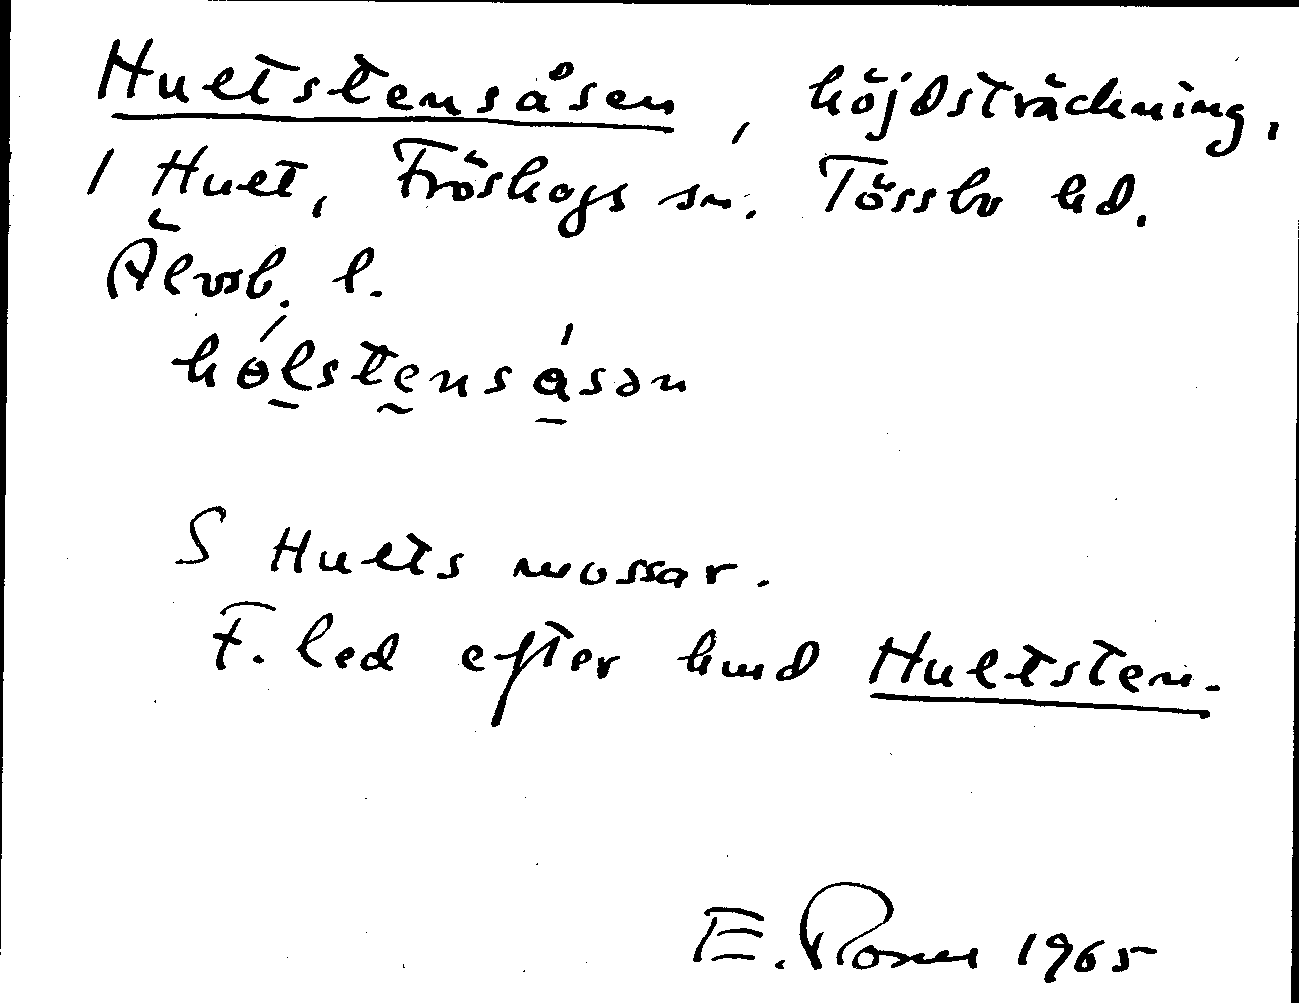 Hultstensåsen, höjdsträckning,
1 Hult, Fröskogs sn. Tössbo hd.
Älvsb. l.
hólstensásən
S Hults mossar.
F. led efter hmd Hultsten.
E. 1965